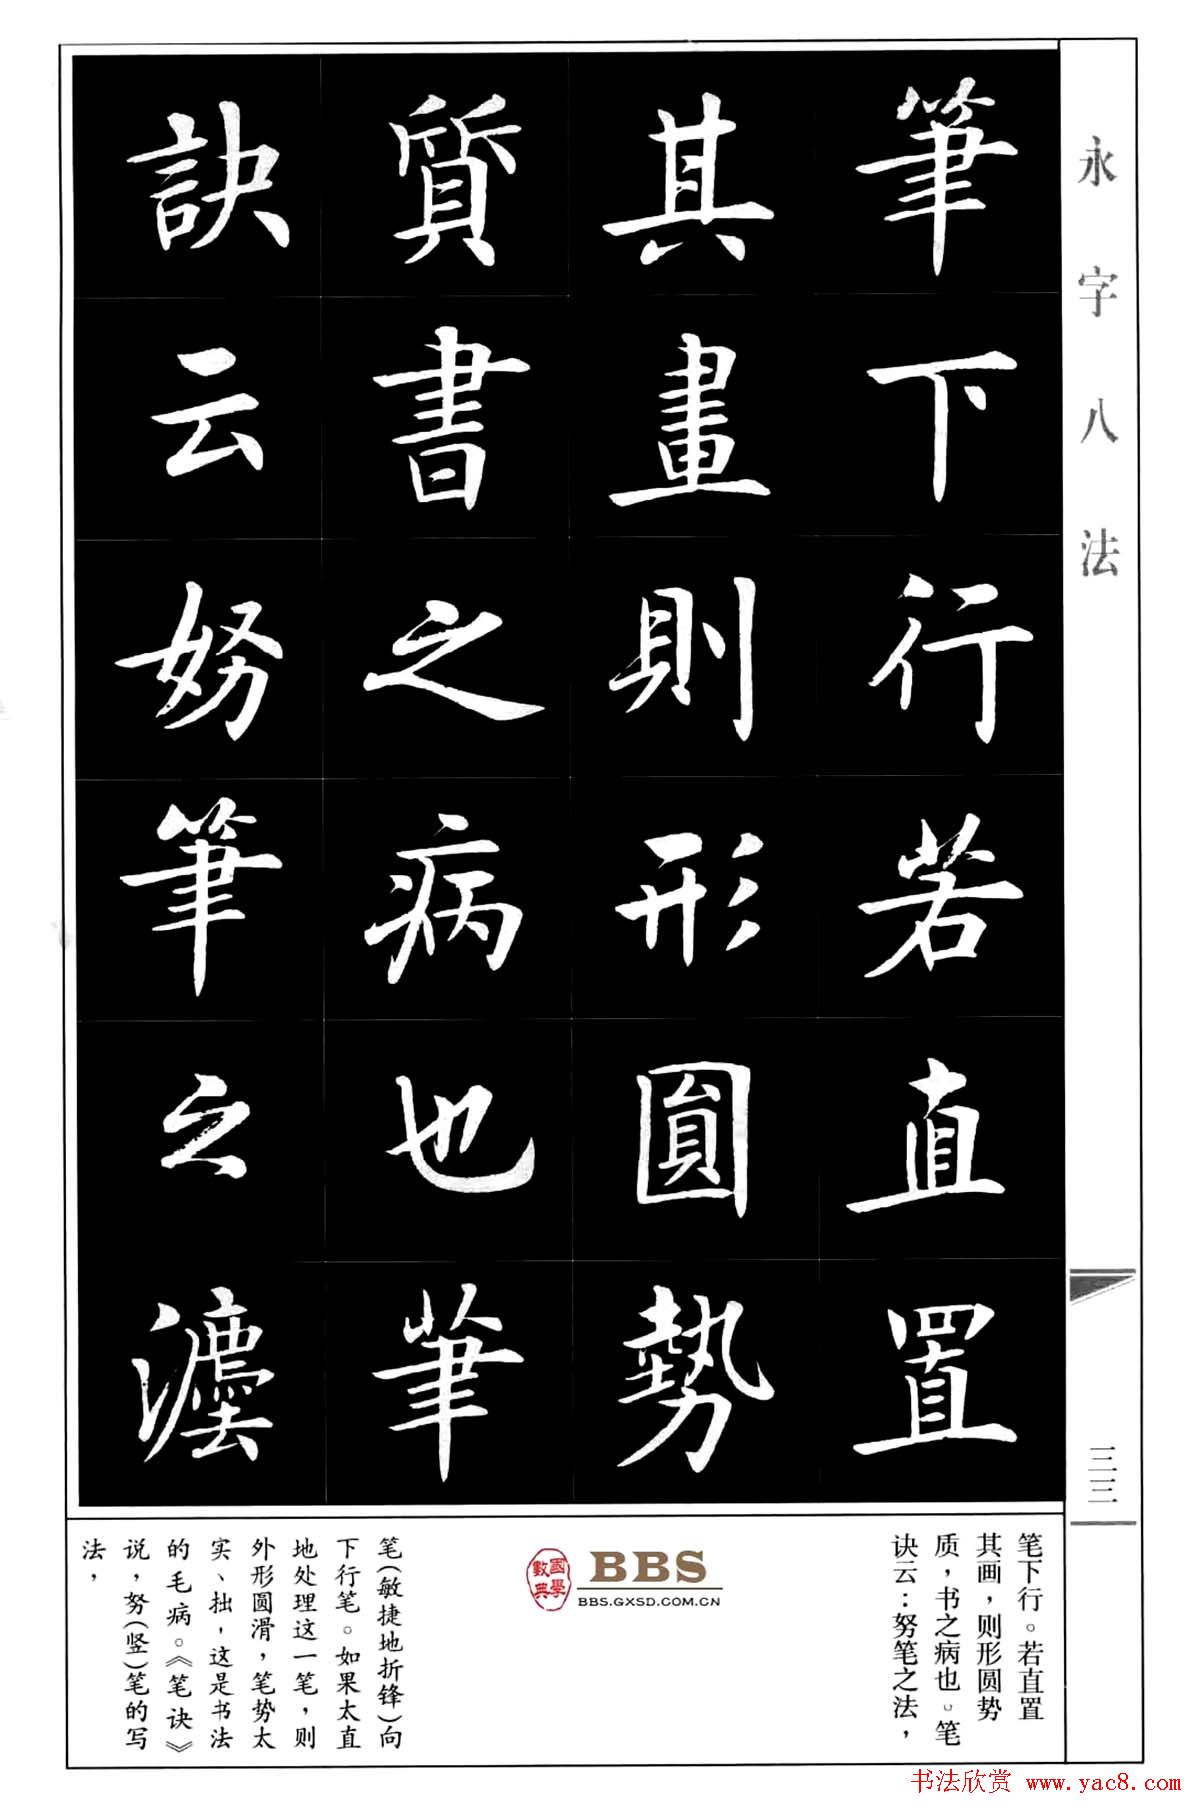 永字八法
筆下行若直置
其畫則形圓勢
質書之病也筆
訣云努筆之灋
三三
笔下行。若直置
其画，则形圆势
质，书之病也。笔
诀云：努笔之法，
國學數典
BBS
BBS.GXSD.COM.CN
笔(敏捷地折锋)向
下行笔。如果太直
地处理这一笔，则
外形圆滑，笔势太
实、拙，这是书法
的毛病。《笔诀》
说，努(竖)笔的写
法，
书法欣赏 www.yac8.com